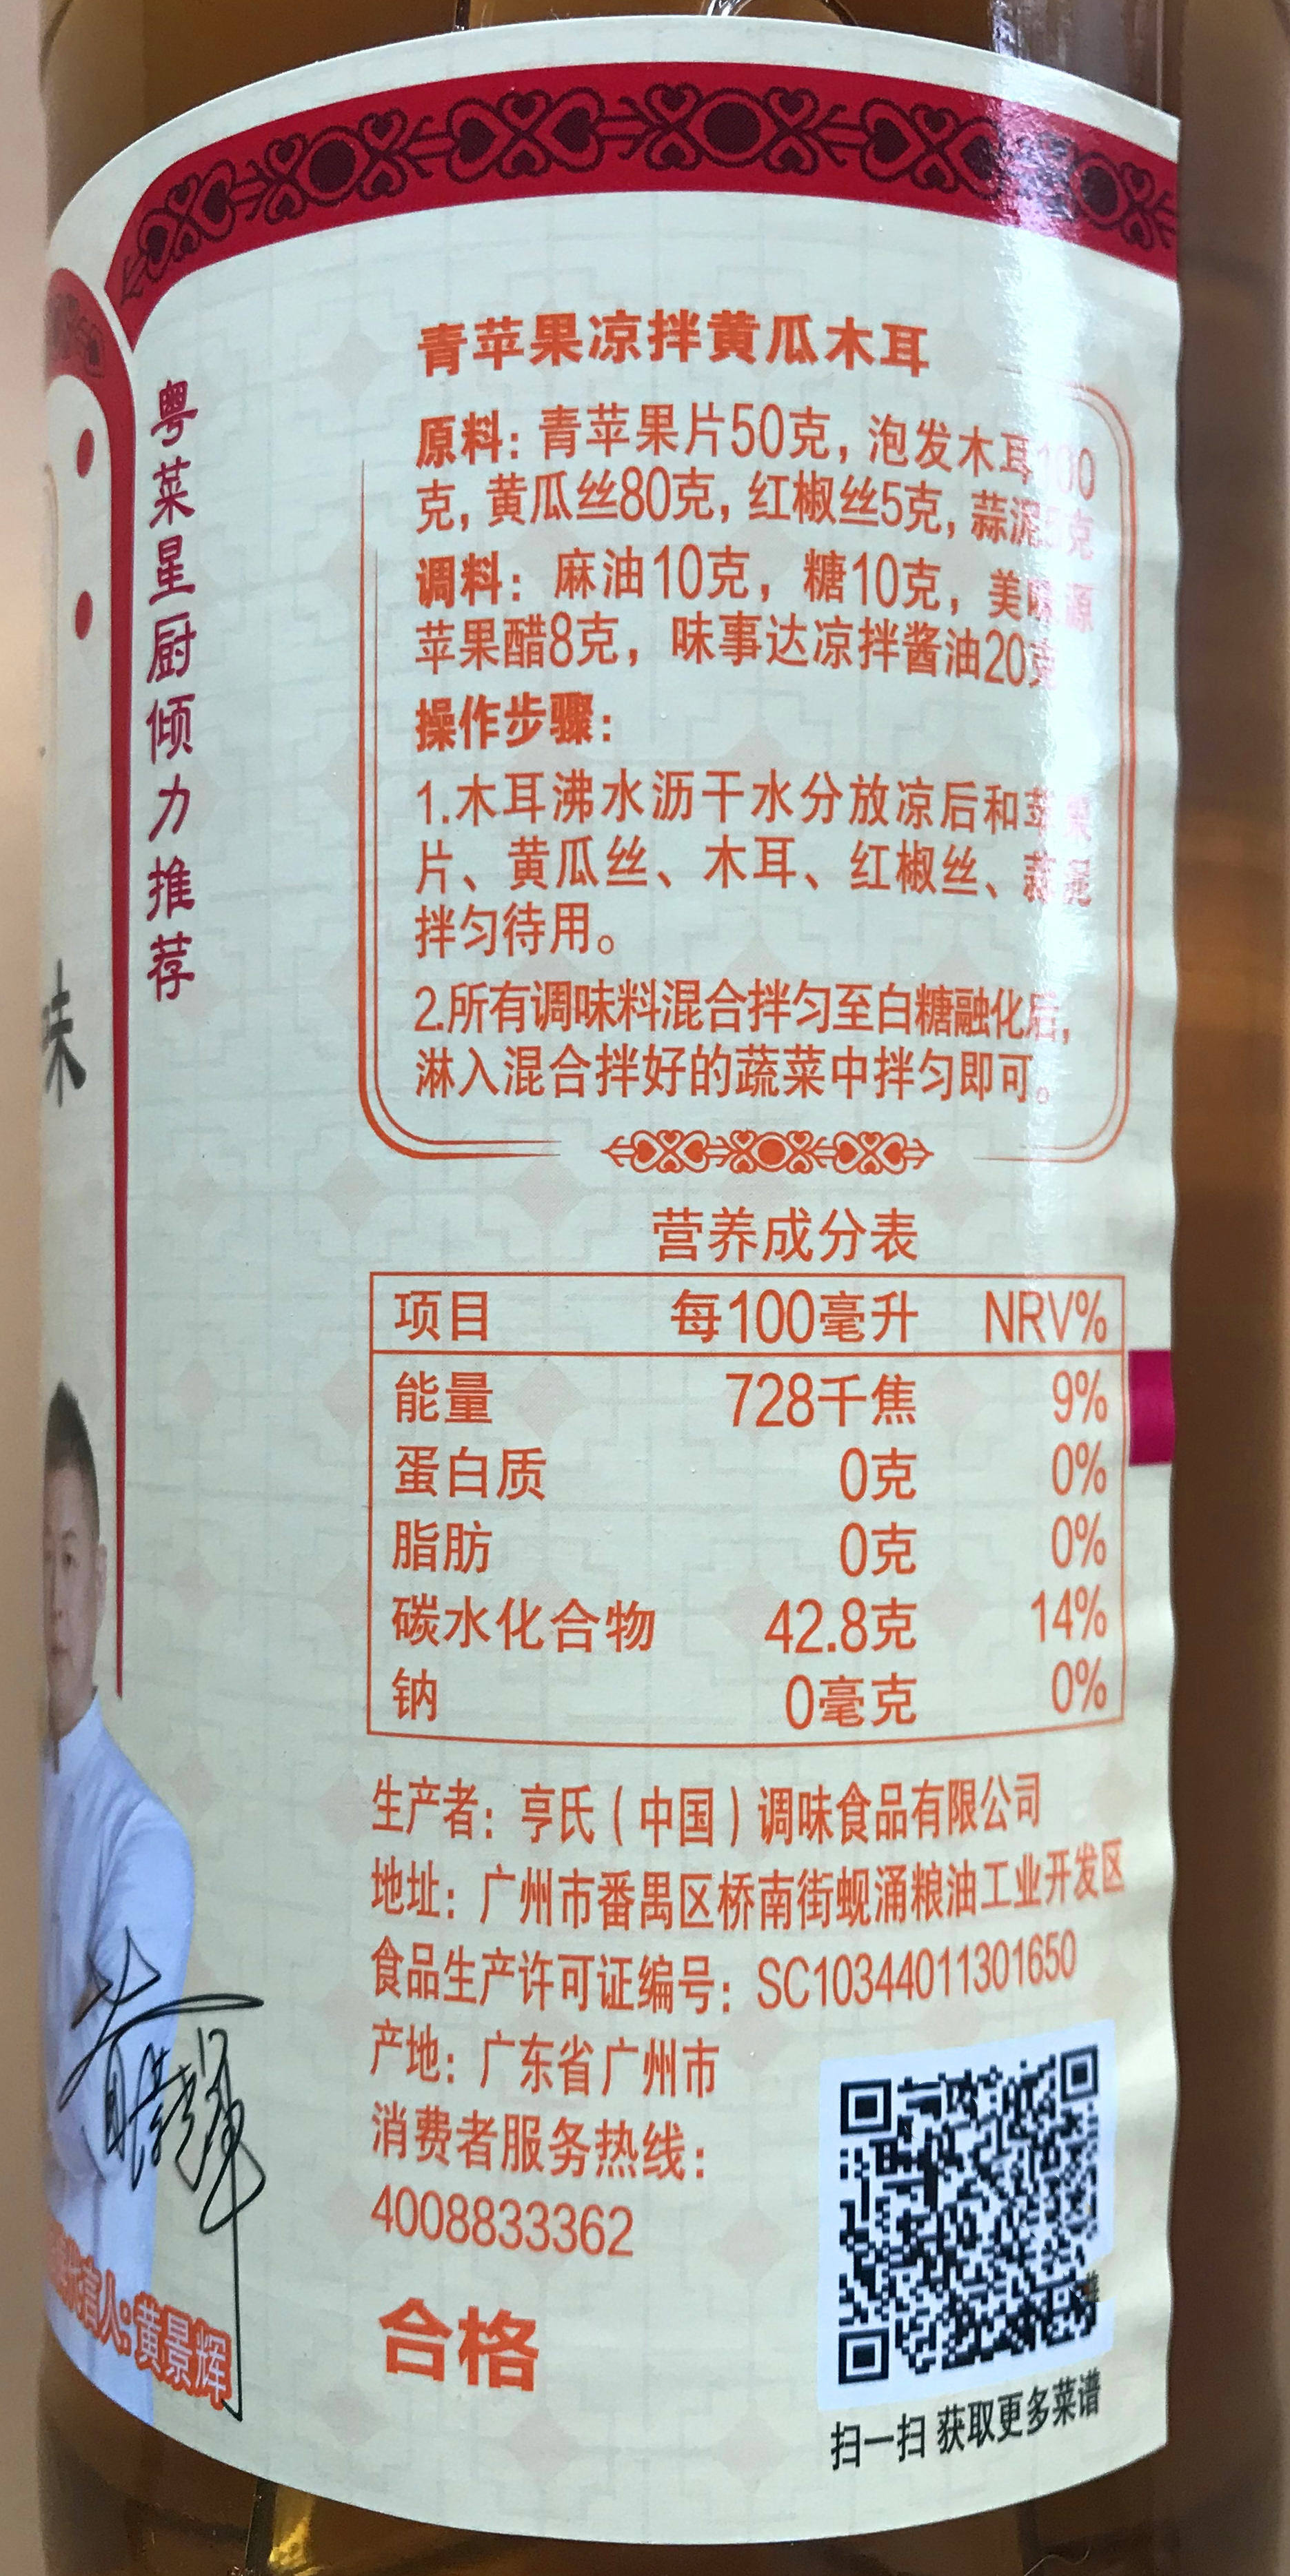 粤菜星厨倾力推荐
味
青苹果凉拌黄瓜木耳
原料：青苹果片50克，泡发木耳100
克，黄瓜丝80克，红椒丝5克，蒜泥5克
调料：麻油10克，糖10克，美味源
苹果醋8克，味事达凉拌酱油20克
操作步骤：
1.木耳沸水沥干水分放凉后和苹果
片、黄瓜丝、木耳、红椒丝、蒜泥
拌匀待用。
2.所有调味料混合拌匀至白糖融化后，
淋入混合拌好的蔬菜中拌匀即可。
营养成分表
项目 每100毫升 NRV%
能量 728千焦 9%
蛋白质 0克 0%
脂肪 0克 0%
碳水化合物 42.8克 14%
钠 0毫克 0%
生产者：亨氏（中国）调味食品有限公司
地址：广州市番禺区桥南街蚬涌粮油工业开发区
食品生产许可证编号：SC10344011301650
产地：广东省广州市
消费者服务热线：
4008833362
合格
扫一扫 获取更多菜谱
黄景辉
言人：黄景辉